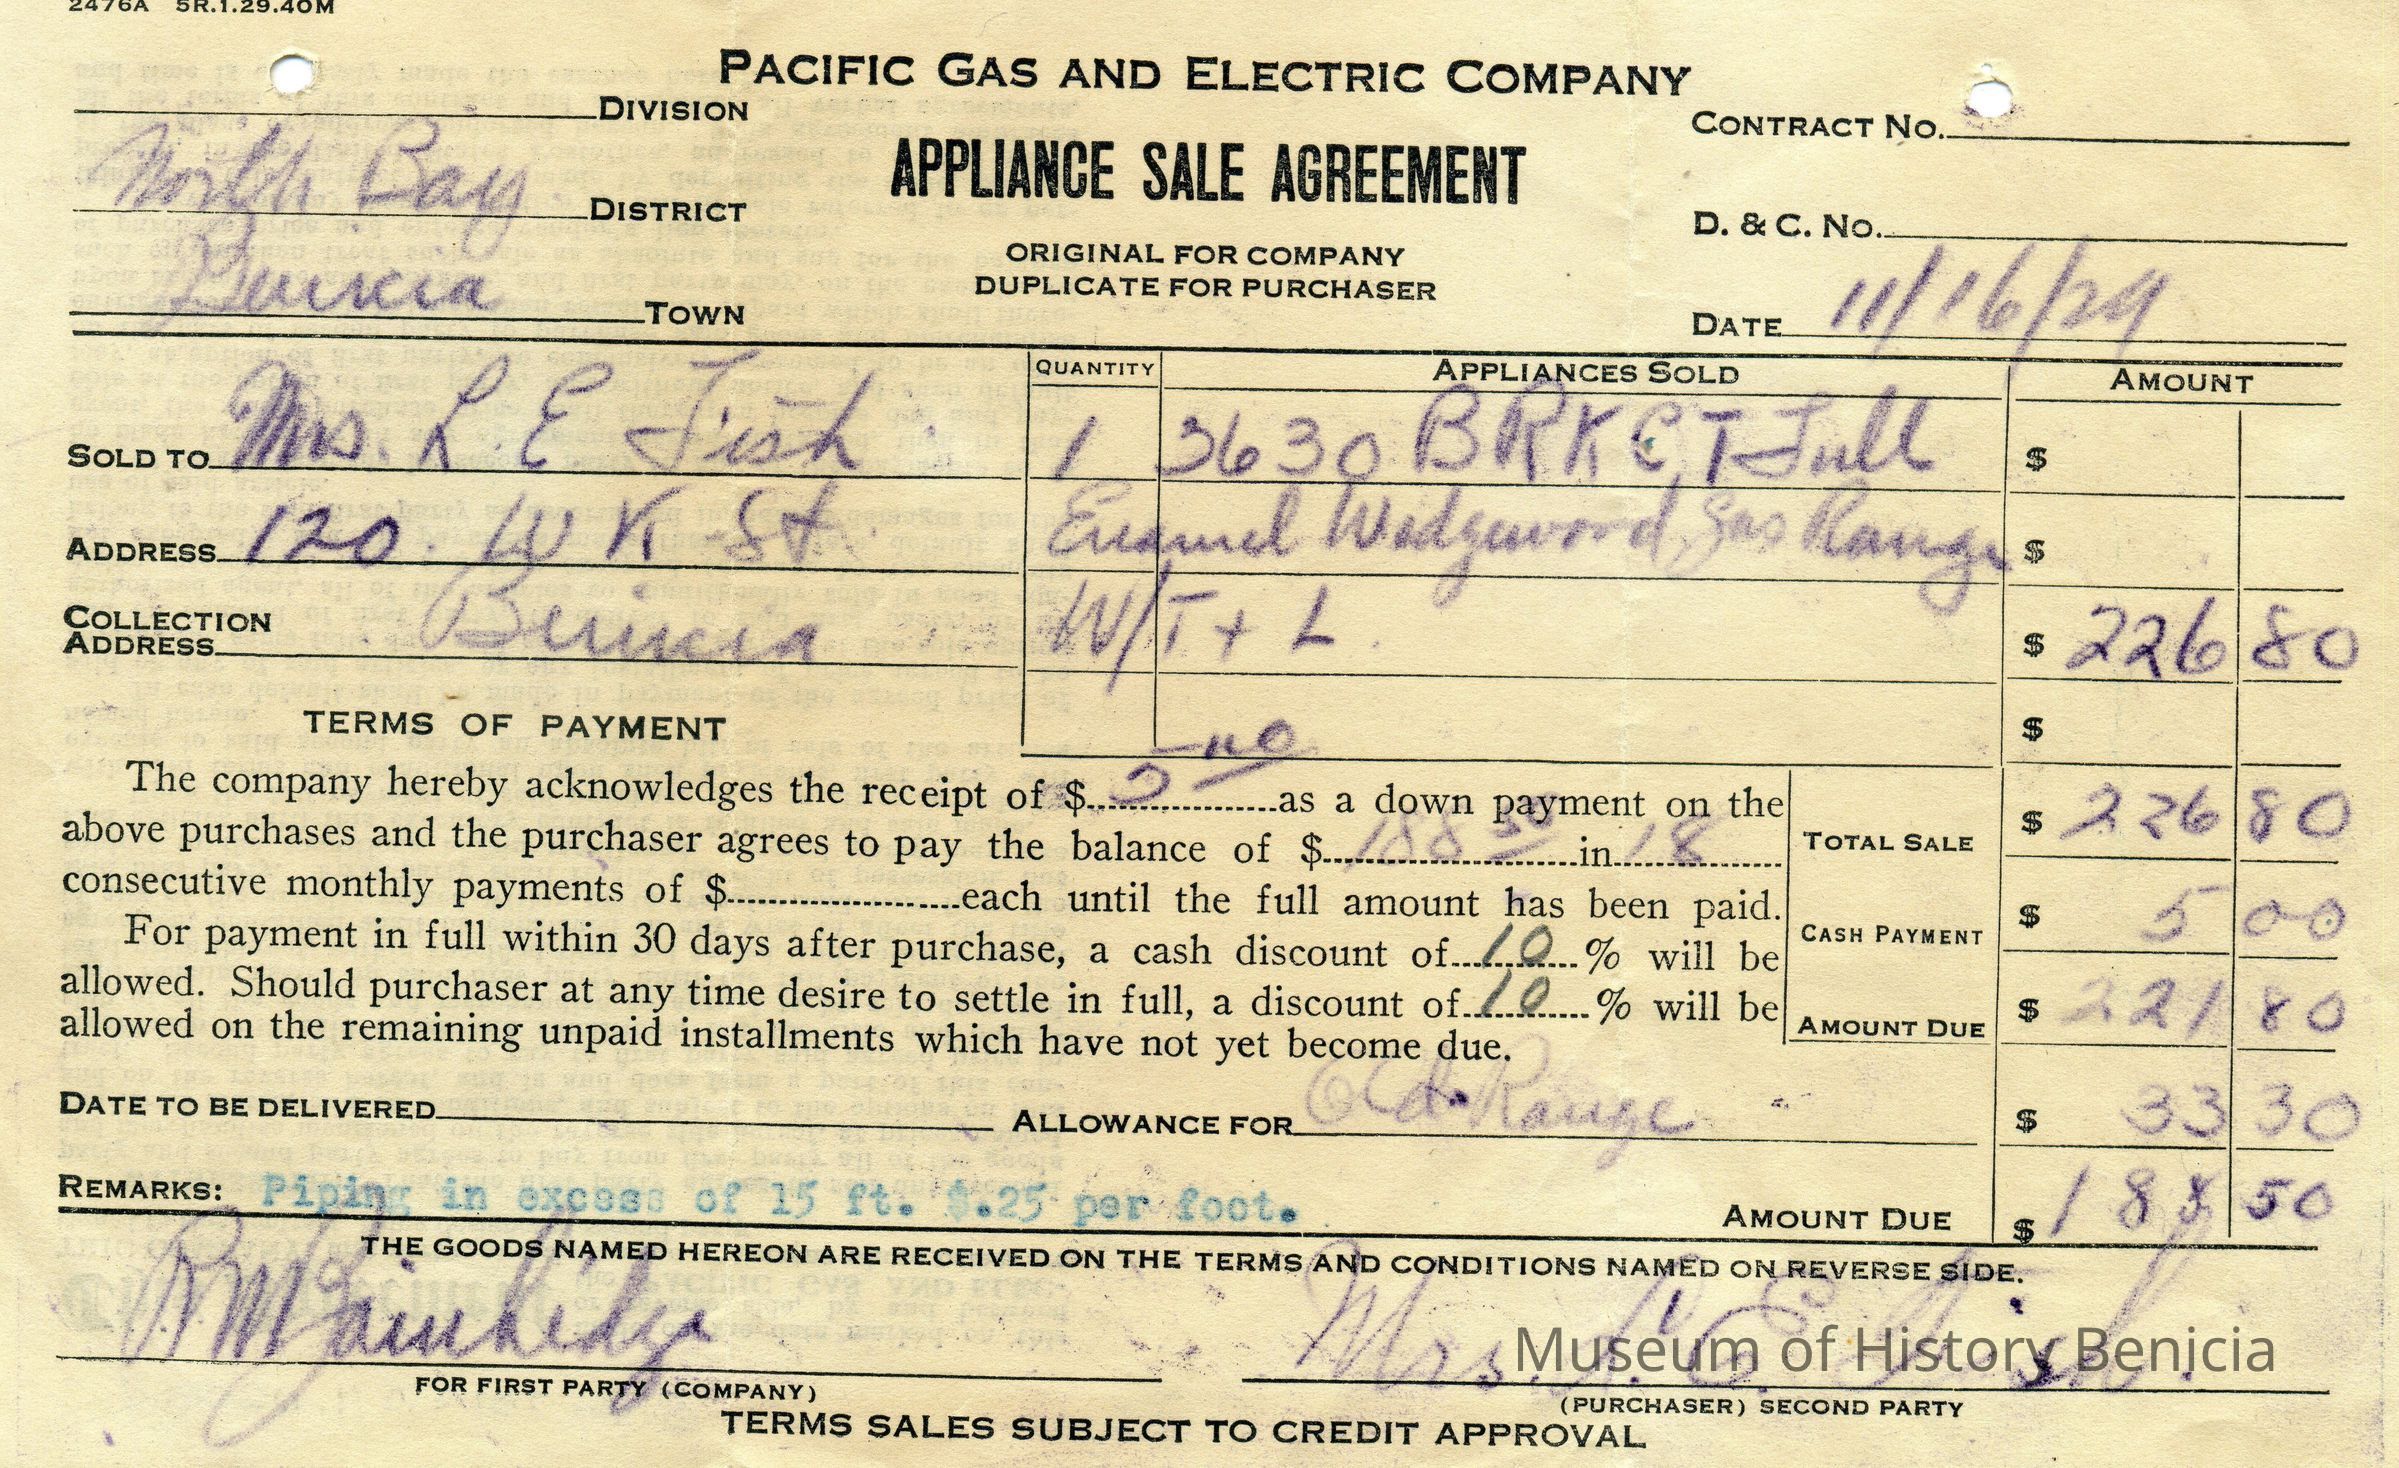 2476A 5R.1.29.40M
PACIFIC GAS AND ELECTRIC COMPANY
DIVISION
CONTRACT NO.
North Bay DISTRICT
APPLIANCE SALE AGREEMENT
D. & C. NO.
ORIGINAL FOR COMPANY
DUPLICATE FOR PURCHASER
Benicia TOWN
DATE 11/16/29
QUANTITY APPLIANCES SOLD AMOUNT
SOLD TO Mrs. L E Fish
1 3630 BRKCT Full $
ADDRESS 120 W K St
Enamel Wedgewood Gas Range $
COLLECTION ADDRESS Benicia
W/T + L $ 226 80
$
TERMS OF PAYMENT
The company hereby acknowledges the receipt of $ 5 00 as a down payment on the
above purchases and the purchaser agrees to pay the balance of $ 188 50 in 18
consecutive monthly payments of $ each until the full amount has been paid.
For payment in full within 30 days after purchase, a cash discount of 10 % will be
allowed. Should purchaser at any time desire to settle in full, a discount of 10 % will be
allowed on the remaining unpaid installments which have not yet become due.
TOTAL SALE $ 226 80
CASH PAYMENT $ 5 00
AMOUNT DUE $ 221 80
DATE TO BE DELIVERED ALLOWANCE FOR Old Range $ 33 30
REMARKS: Piping in excess of 15 ft. $.25 per foot. AMOUNT DUE $ 188 50
THE GOODS NAMED HEREON ARE RECEIVED ON THE TERMS AND CONDITIONS NAMED ON REVERSE SIDE.
Mrs. L. E. Fish
Museum of History Benicia
FOR FIRST PARTY (COMPANY)
(PURCHASER) SECOND PARTY
TERMS SALES SUBJECT TO CREDIT APPROVAL